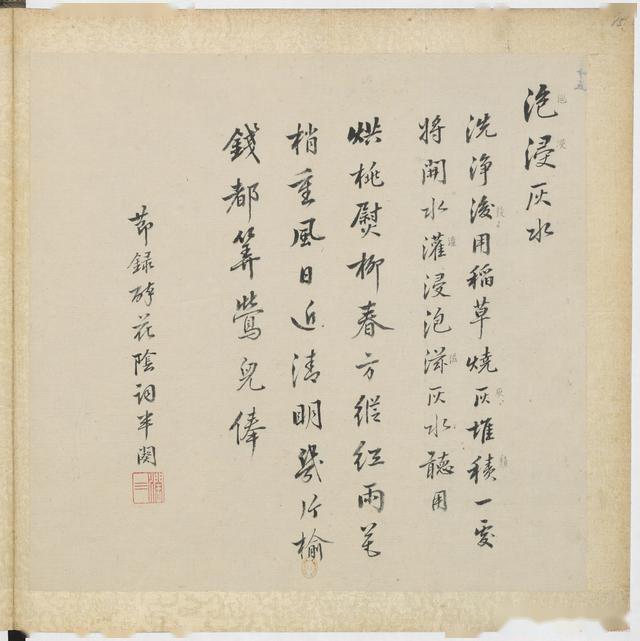 15
十五
泡浸灰水
洗浄後用稻草燒灰堆積一處
將開水灌浸泡滋灰水聽用
烘桃熨柳春方縱紅雨花
梢重風日近清明幾片榆
錢都算鶯兒俸
節錄醉花陰詞半闋